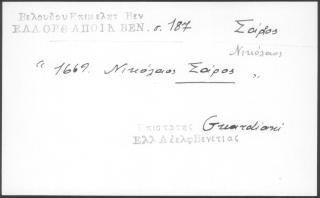 Βελουδου Επιμελητ Βεν
ΕΛΛ ΟΡΘ ΑΠΟΙΑ ΒΕΝ. σ. 187
Σάρος
Νικόλαος
“ 1669. Νικόλαος Σάρος „
Επιστατης Guardiani
Ελλ Αδελφ Βενετιας